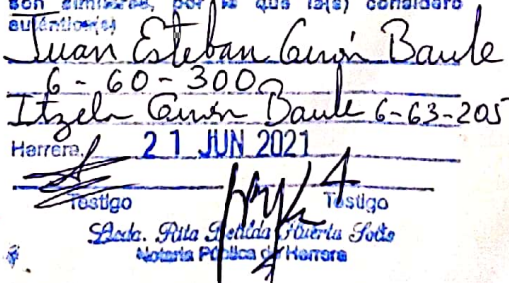 son similares, por lo que la(s) considero
auténtica(s)
Juan Esteban Giron Baule
6-60-300
Itzela Giron Baule 6-63-205
Herrera, 21 JUN 2021
Testigo Testigo
Licda. Rita Huerta Solis
Notaria Pública de Herrera